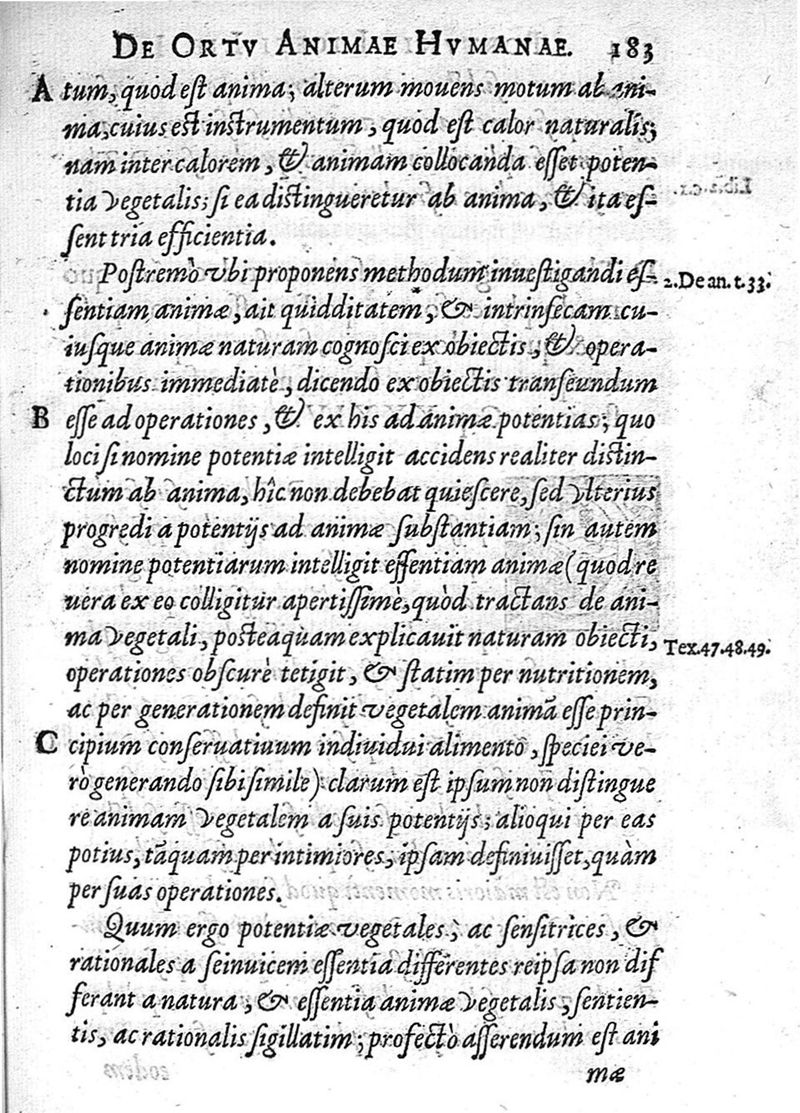 DE ORTV ANIMAE HVMANAE. 183
A tum, quod est anima; alterum mouens motum ab ani-
ma, cuius est instrumentum, quod est calor naturalis;
nam inter calorem, & animam collocanda esset poten-
tia vegetalis; si ea distingueretur ab anima, & ita es-
sent tria efficientia.
Postremò vbi proponens methodum inuestigandi es- 2.De an. t.33.
sentiam animæ, ait quidditatem, & intrinsecam cu-
iusque animæ naturam cognosci ex obiectis, & opera-
tionibus immediatè, dicendo ex obiectis transeundum
B esse ad operationes, & ex his ad animæ potentias; quo
loci si nomine potentiæ intelligit accidens realiter distin-
ctum ab anima, hîc non debebat quiescere, sed vlterius
progredi a potentijs ad animæ substantiam; sin autem
nomine potentiarum intelligit essentiam animæ (quod re
uera ex eo colligitur apertissimè, quòd tractans de ani-
ma vegetali, posteaquam explicauit naturam obiecti, Tex.47.48.49.
operationes obscurè tetigit, & statim per nutritionem,
ac per generationem definit vegetalem animã esse prin-
C cipium conseruatiuum indiuidui alimento, speciei ve-
rò generando sibi simile) clarum est ipsum non distingue
re animam vegetalem a suis potentijs; alioqui per eas
potius, tãquam per intimiores, ipsam definiuisset, quàm
per suas operationes.
Quum ergo potentiæ vegetales, ac sensitrices, &
rationales a seinuicem essentia differentes reipsa non dif
ferant a natura, & essentia animæ vegetalis, sentien-
tis, ac rationalis sigillatim; profectò asserendum est ani
mæ